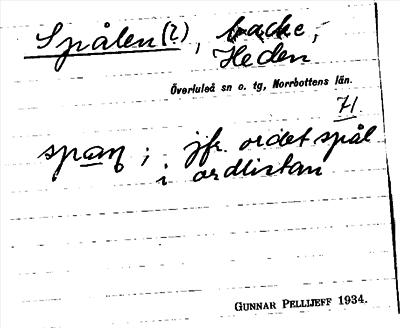 Spålen(?), backe,
Heden
Överluleå sn o. tg, Norrbottens län.
71.
; jfr. ordet spål
i ordlistan
GUNNAR PELLIJEFF 1934.